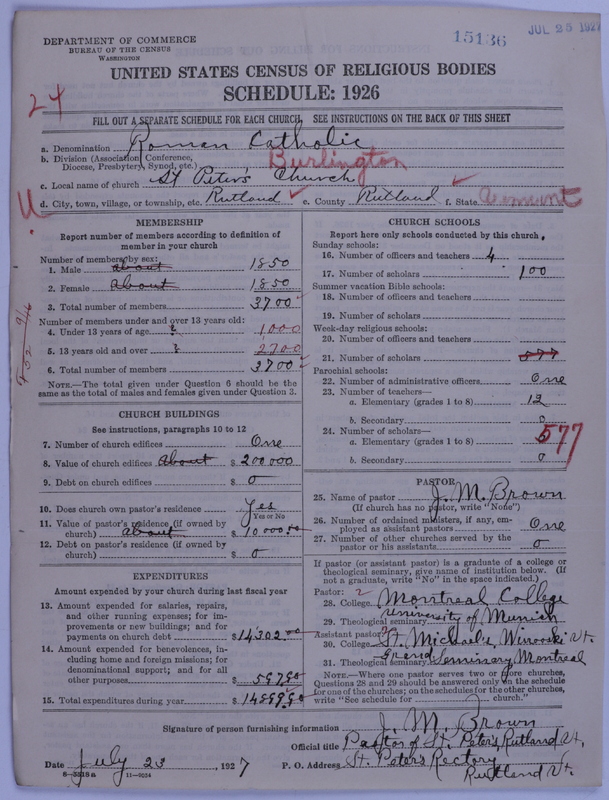 DEPARTMENT OF COMMERCE
BUREAU OF THE CENSUS
WASHINGTON
15136
JUL 25 1927
UNITED STATES CENSUS OF RELIGIOUS BODIES
SCHEDULE: 1926
24
FILL OUT A SEPARATE SCHEDULE FOR EACH CHURCH. SEE INSTRUCTIONS ON THE BACK OF THIS SHEET
a. Denomination Roman Catholic
b. Division (Association, Conference, Diocese, Presbytery, Synod, etc.) Burlington
c. Local name of church St Peter's Church
d. City, town, village, or township, etc. Rutland e. County Rutland f. State Vermont
U.
MEMBERSHIP
Report number of members according to definition of
member in your church
Number of members by sex:
1. Male about 1850
2. Female about 1850
3. Total number of members 3700
Number of members under and over 13 years old:
4. Under 13 years of age ? 1000
5. 13 years old and over ? 2700
6. Total number of members 3700
NOTE.—The total given under Question 6 should be the
same as the total of males and females given under Question 3.
CHURCH BUILDINGS
See instructions, paragraphs 10 to 12
7. Number of church edifices One
8. Value of church edifices about $ 200000
9. Debt on church edifices $ 0
10. Does church own pastor's residence Yes
Yes or No
11. Value of pastor's residence (if owned by
church) about $ 10000.00
12. Debt on pastor's residence (if owned by
church) $ 0
EXPENDITURES
Amount expended by your church during last fiscal year
13. Amount expended for salaries, repairs,
and other running expenses; for im-
provements or new buildings; and for
payments on church debt $ 14302.00
14. Amount expended for benevolences, in-
cluding home and foreign missions; for
denominational support; and for all
other purposes $
15. Total expenditures during year $
CHURCH SCHOOLS
Report here only schools conducted by this church.
Sunday schools:
16. Number of officers and teachers 4
17. Number of scholars 100
Summer vacation Bible schools:
18. Number of officers and teachers
19. Number of scholars
Week-day religious schools:
20. Number of officers and teachers
21. Number of scholars 577
Parochial schools:
22. Number of administrative officers One
23. Number of teachers—
a. Elementary (grades 1 to 8) 12
b. Secondary 0
24. Number of scholars—
a. Elementary (grades 1 to 8) 577
b. Secondary 0
PASTOR
25. Name of pastor J. M. Brown
(If church has no pastor, write "None")
26. Number of ordained ministers, if any, em-
ployed as assistant pastors One
27. Number of other churches served by the
pastor or his assistants 0
If pastor (or assistant pastor) is a graduate of a college or
theological seminary, give name of institution below. (If
not a graduate, write "No" in the space indicated.)
Pastor: 2
28. College Montreal College
29. Theological seminary University of Munich
Assistant pastor: 2
30. College St. Michaels, Winooski Vt.
31. Theological seminary Grand Seminary Montreal
NOTE.—Where one pastor serves two or more churches,
Questions 28 and 29 should be answered only on the schedule
for one of the churches; on the schedules for the other churches,
write "See schedule for church."
Signature of person furnishing information J. M. Brown
Official title Pastor of St. Peter's Rutland Vt.
Date July 23, 1927 P. O. Address St. Peter's Rectory
Rutland Vt.
8—3318a 11—9024